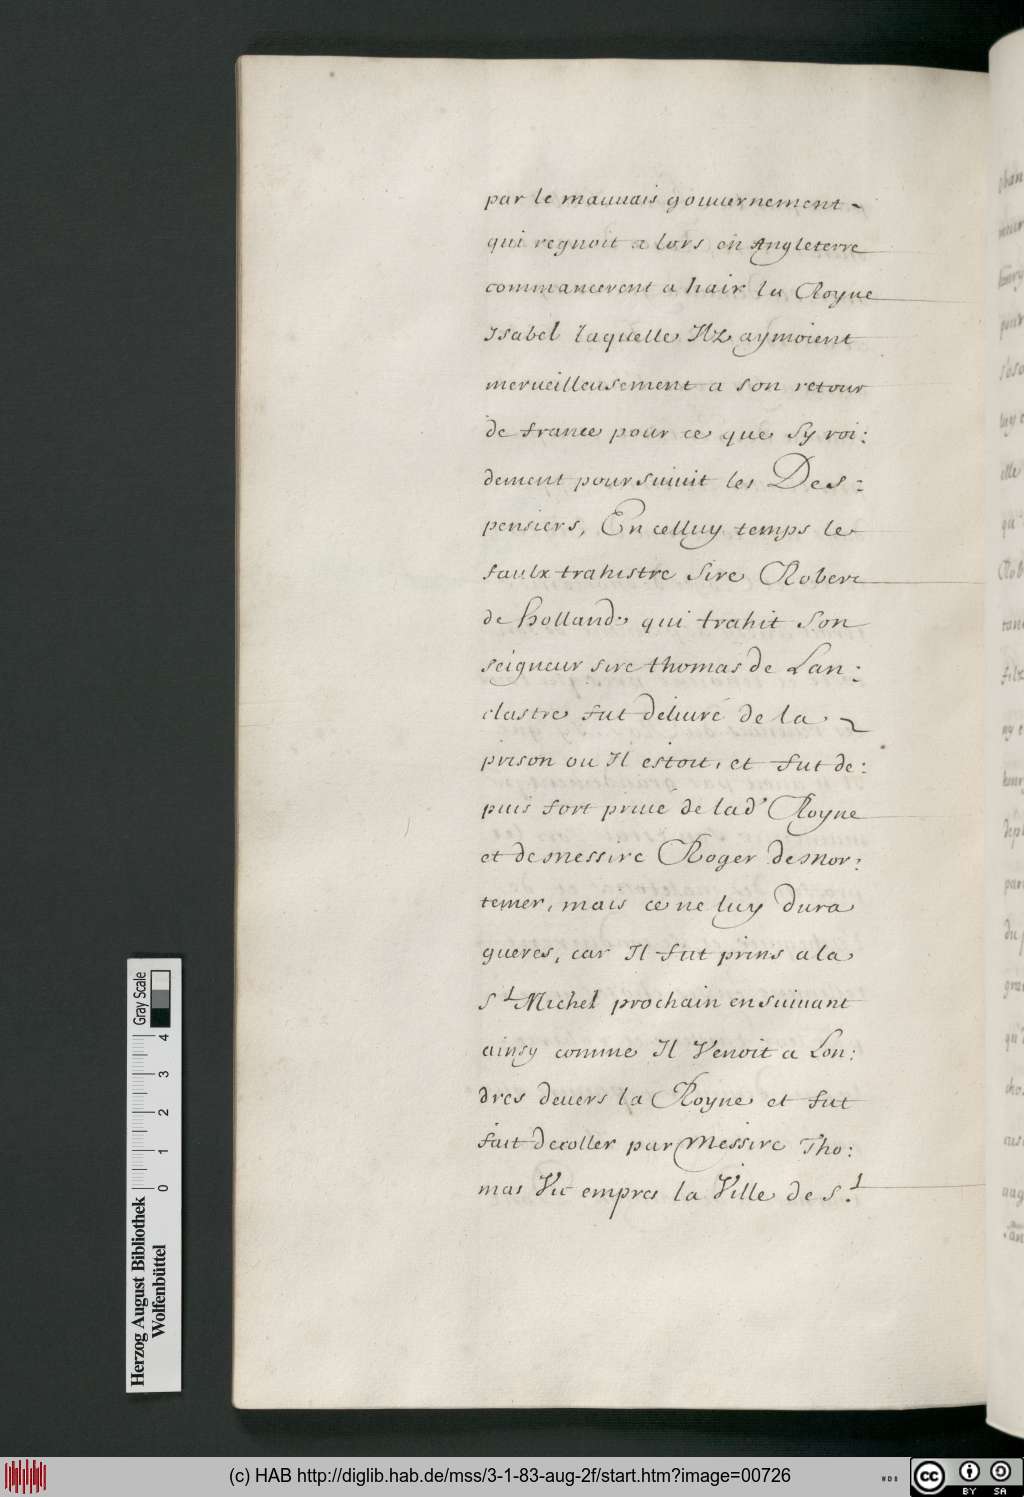 par le mauuais gouuernement
qui regnoit a lors en Angleterre
commancerent a hair la Royne
Isabel laquelle Ilz aymoient
merueilleusement a son retour
de france pour ce que sy roi:
dement poursuiuit les Des:
pensiers, En celluy temps le
faulx trahistre Sire Robert
de Holland, qui trahit son
seigneur sire thomas de Lan:
clastre fut deliuré de la
prison ou Il estoit, et fut de:
puis fort priué de lad' Royne
et de messire Roger de Mor:
temer, mais ce ne luy dura
gueres, car Il fut prins a la
St Michel prochain ensuiuant
ainsy comme Il Venoit a Lon:
dres deuers la Royne et fut
fait decoller par Messire Tho:
mas Vit empres la Ville de St
Herzog August Bibliothek
Wolfenbüttel
0 1 2 3 4
Gray Scale
(c) HAB http://diglib.hab.de/mss/3-1-83-aug-2f/start.htm?image=00726
WDB
cc BY SA